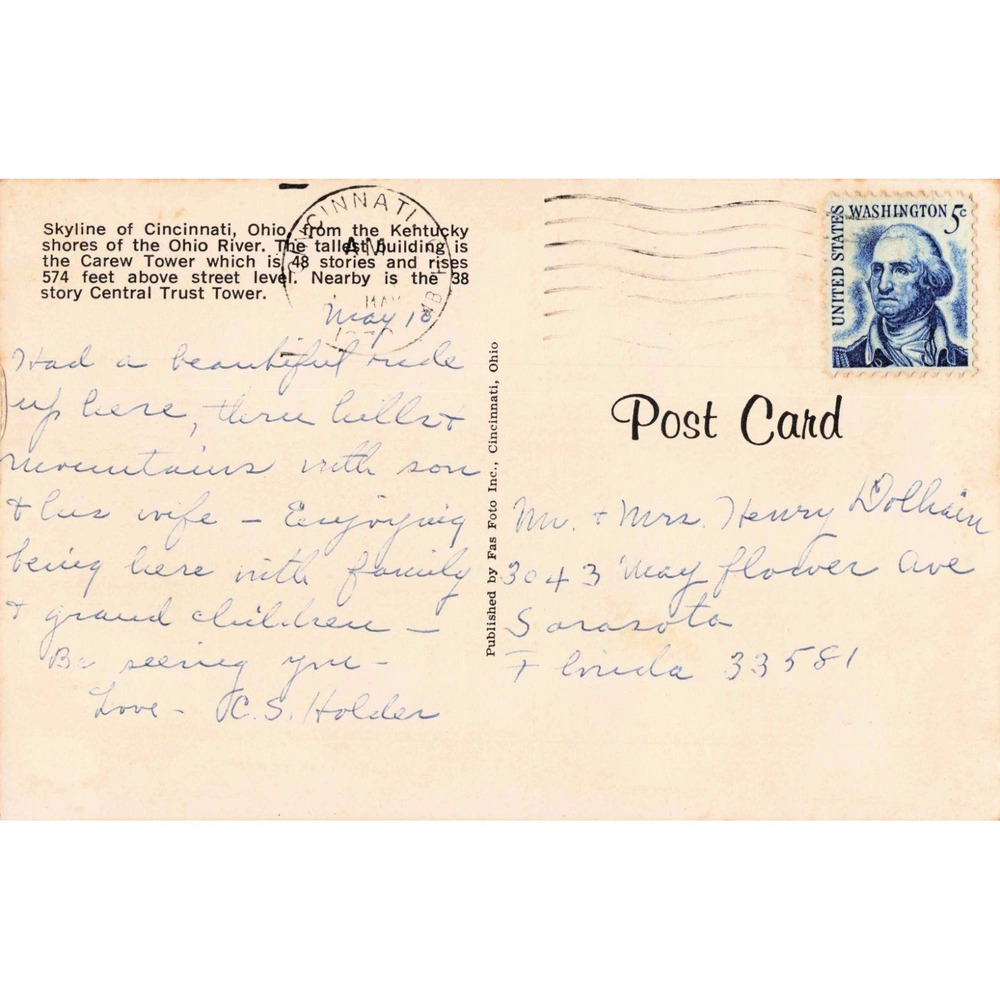 Skyline of Cincinnati, Ohio, from the Kentucky
shores of the Ohio River. The tallest building is
the Carew Tower which is 48 stories and rises
574 feet above street level. Nearby is the 38
story Central Trust Tower.
CINCINNATI
AM
MAY
May 18
Had a beautiful ride
up here, thru hills +
mountains with son
+ his wife – Enjoying
being here with family
+ grand children –
Be seeing you –
Love – C.S. Holder
Published by Fas Foto Inc., Cincinnati, Ohio
UNITED STATES
WASHINGTON 5c
Post Card
Mr. + Mrs. Henry Dolhain
3043 Mayflower Ave
Sarasota
Florida 33581